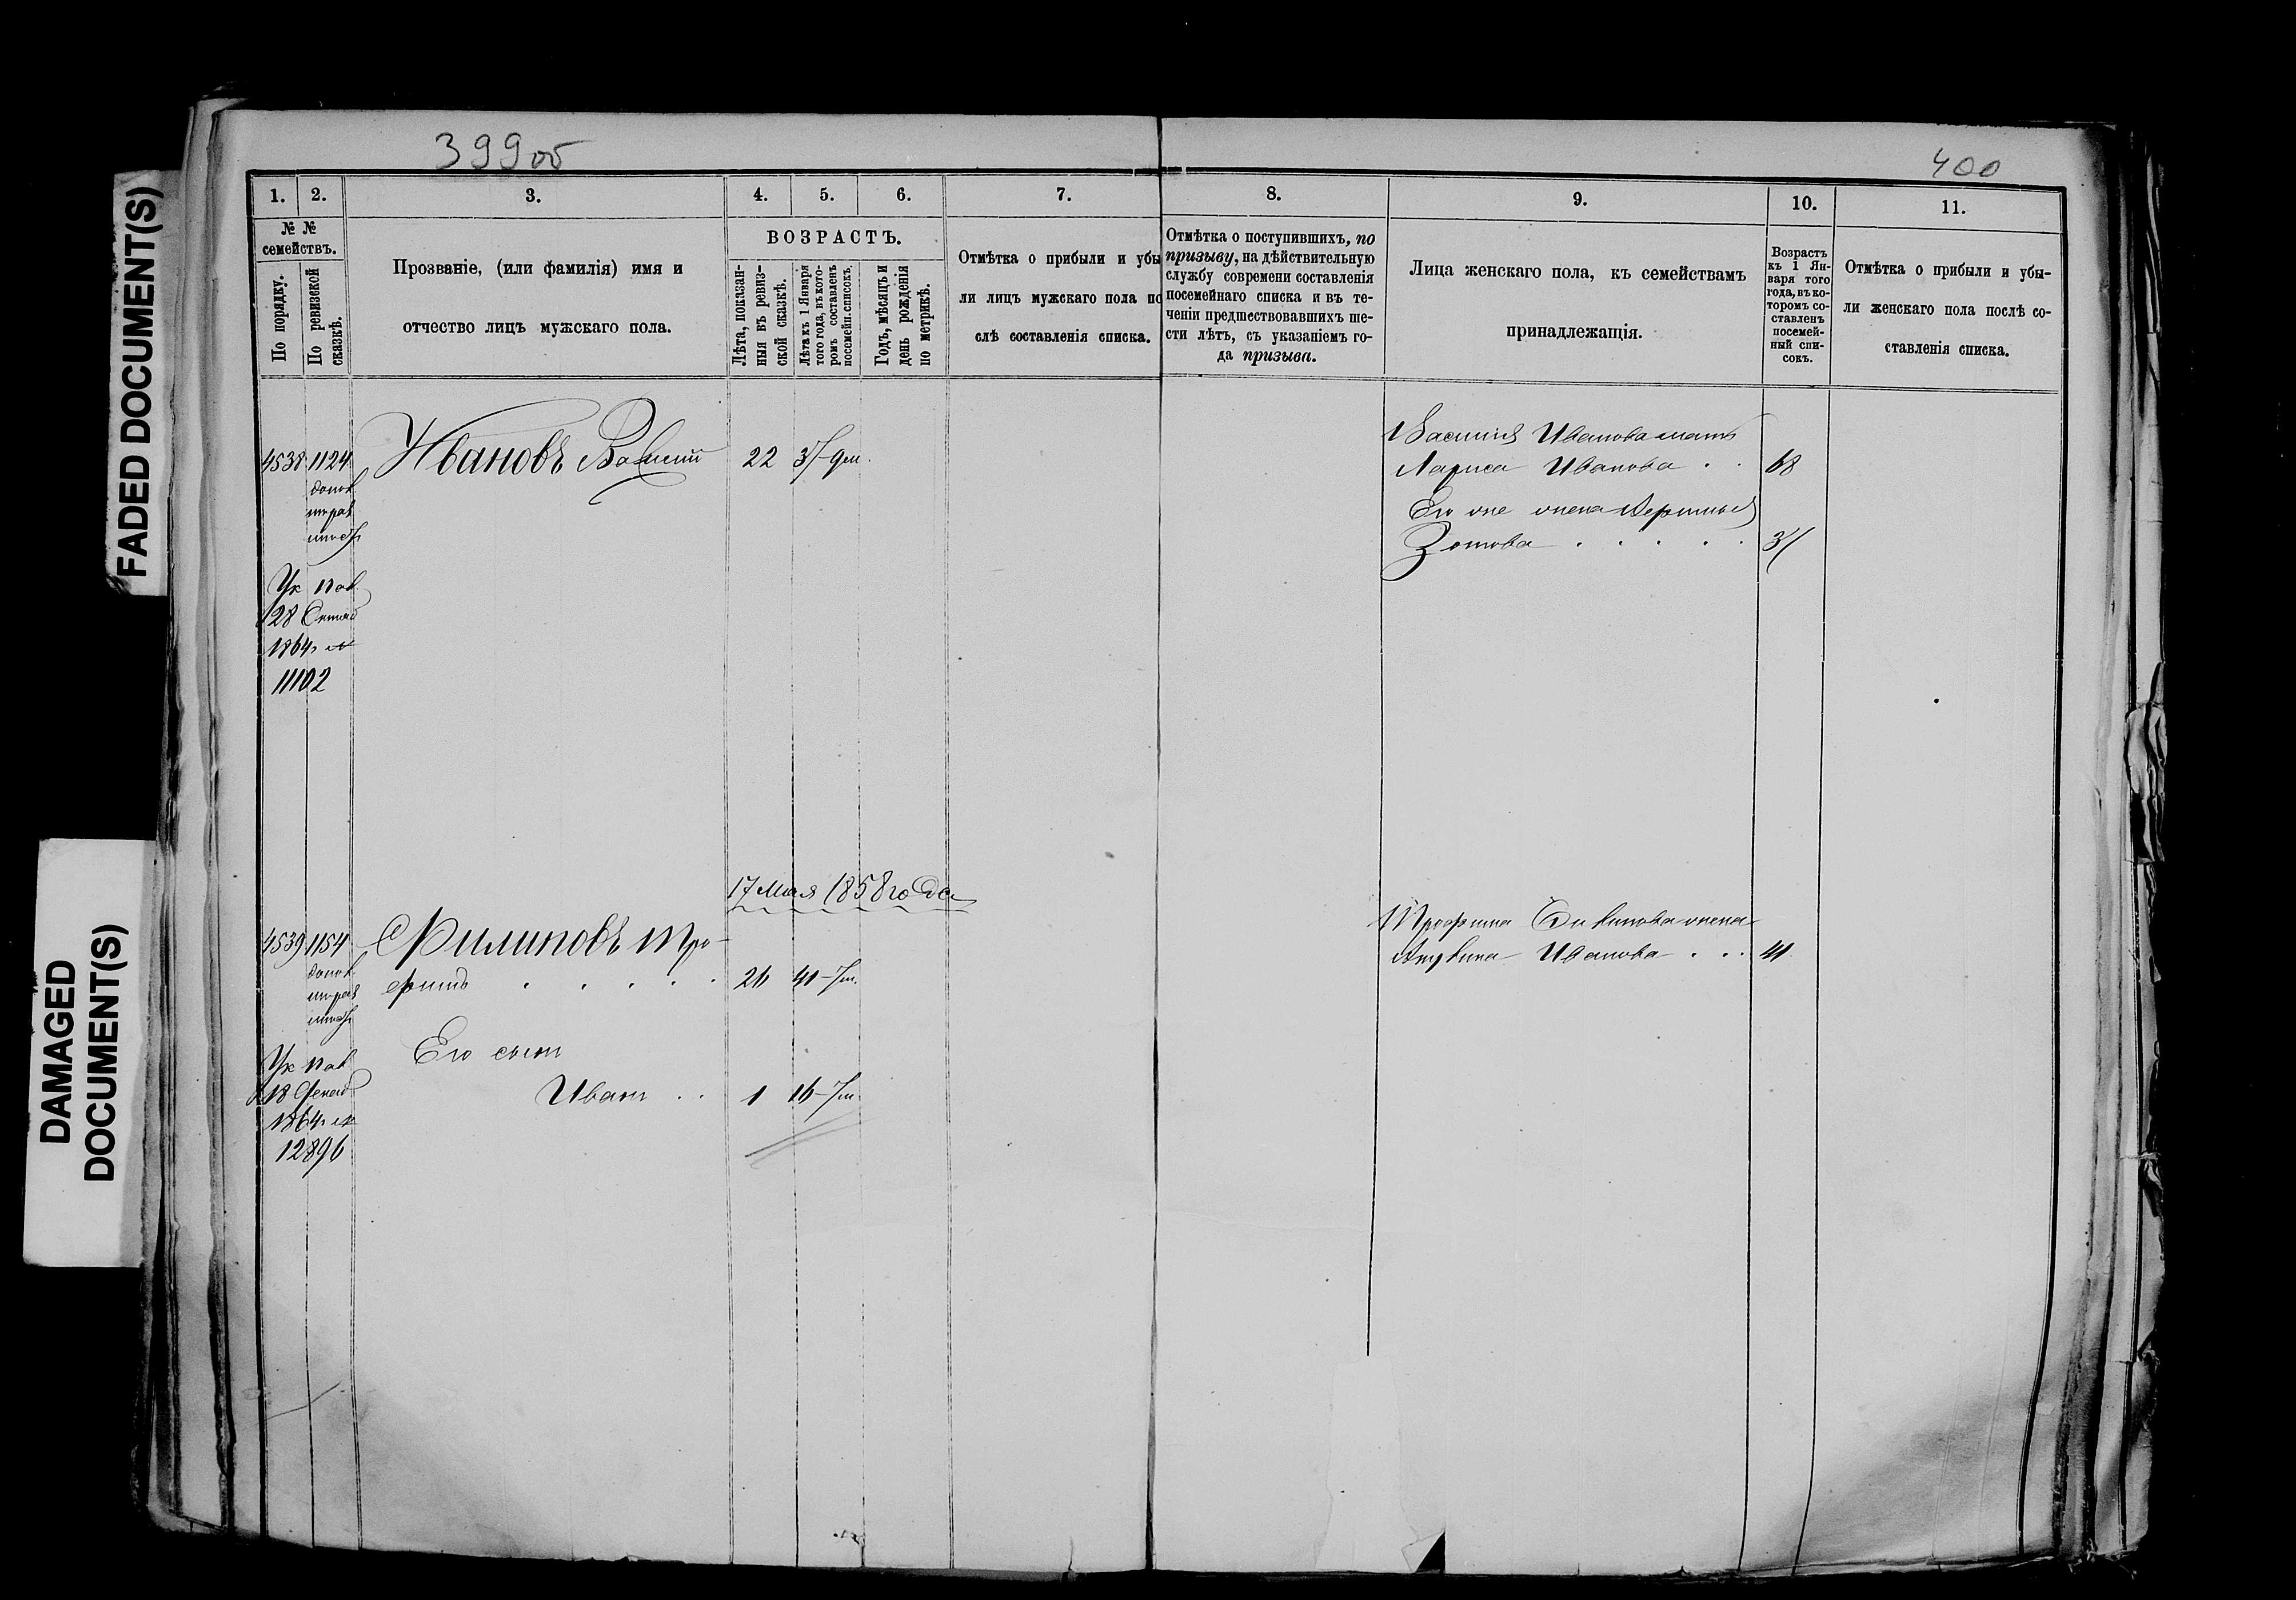 FADED DOCUMENT(S)
DAMAGED
DOCUMENT(S)
399об
400
1.
2.
3.
4.
5.
6.
7.
8.
9.
10.
11.
№ №
семействъ.
По порядку.
По ревизской
сказкѣ.
Прозваніе, (или фамилія) имя и
отчество лицъ мужскаго пола.
ВОЗРАСТЪ.
Лѣта, показан-
ныя въ ревиз-
ской сказкѣ.
Лѣта къ 1 Января
того года, въ кото-
ромъ составленъ
посемейн. списокъ.
Годъ, мѣсяцъ и
день рожденія
по метрикѣ.
Отмѣтка о прибыли и убы
ли лицъ мужскаго пола по
слѣ составленія списка.
Отмѣтка о поступившихъ, по
призыву, на дѣйствительную
службу современи составленія
посемейнаго списка и въ те-
ченіи предшествовавшихъ ше-
сти лѣтъ, съ указаніемъ го-
да призыва.
Лица женскаго пола, къ семействамъ
принадлежащія.
Возрастъ
къ 1 Ян-
варя того
года, въ ко-
торомъ со-
ставленъ
посемей-
ный спи-
сокъ.
Отмѣтка о прибыли и убы-
ли женскаго пола послѣ со-
ставленія списка.
4538 1124 Ивановъ Василій 22
Василія Иванова мать
Лариса Иванова . . 68
Его же жена
Зотова . . . . .
Ук Пав
28
1864г №
11102
17 Мая 1858 года
4539 1154 Филиповъ Тро-
фимъ . . . . . 26 41-7м.
Трофима Филипова жена
Иванова . . . 41
Его сынъ
Иванъ . . 1 16-7м.
Ук Пав
18
1864г №
12896